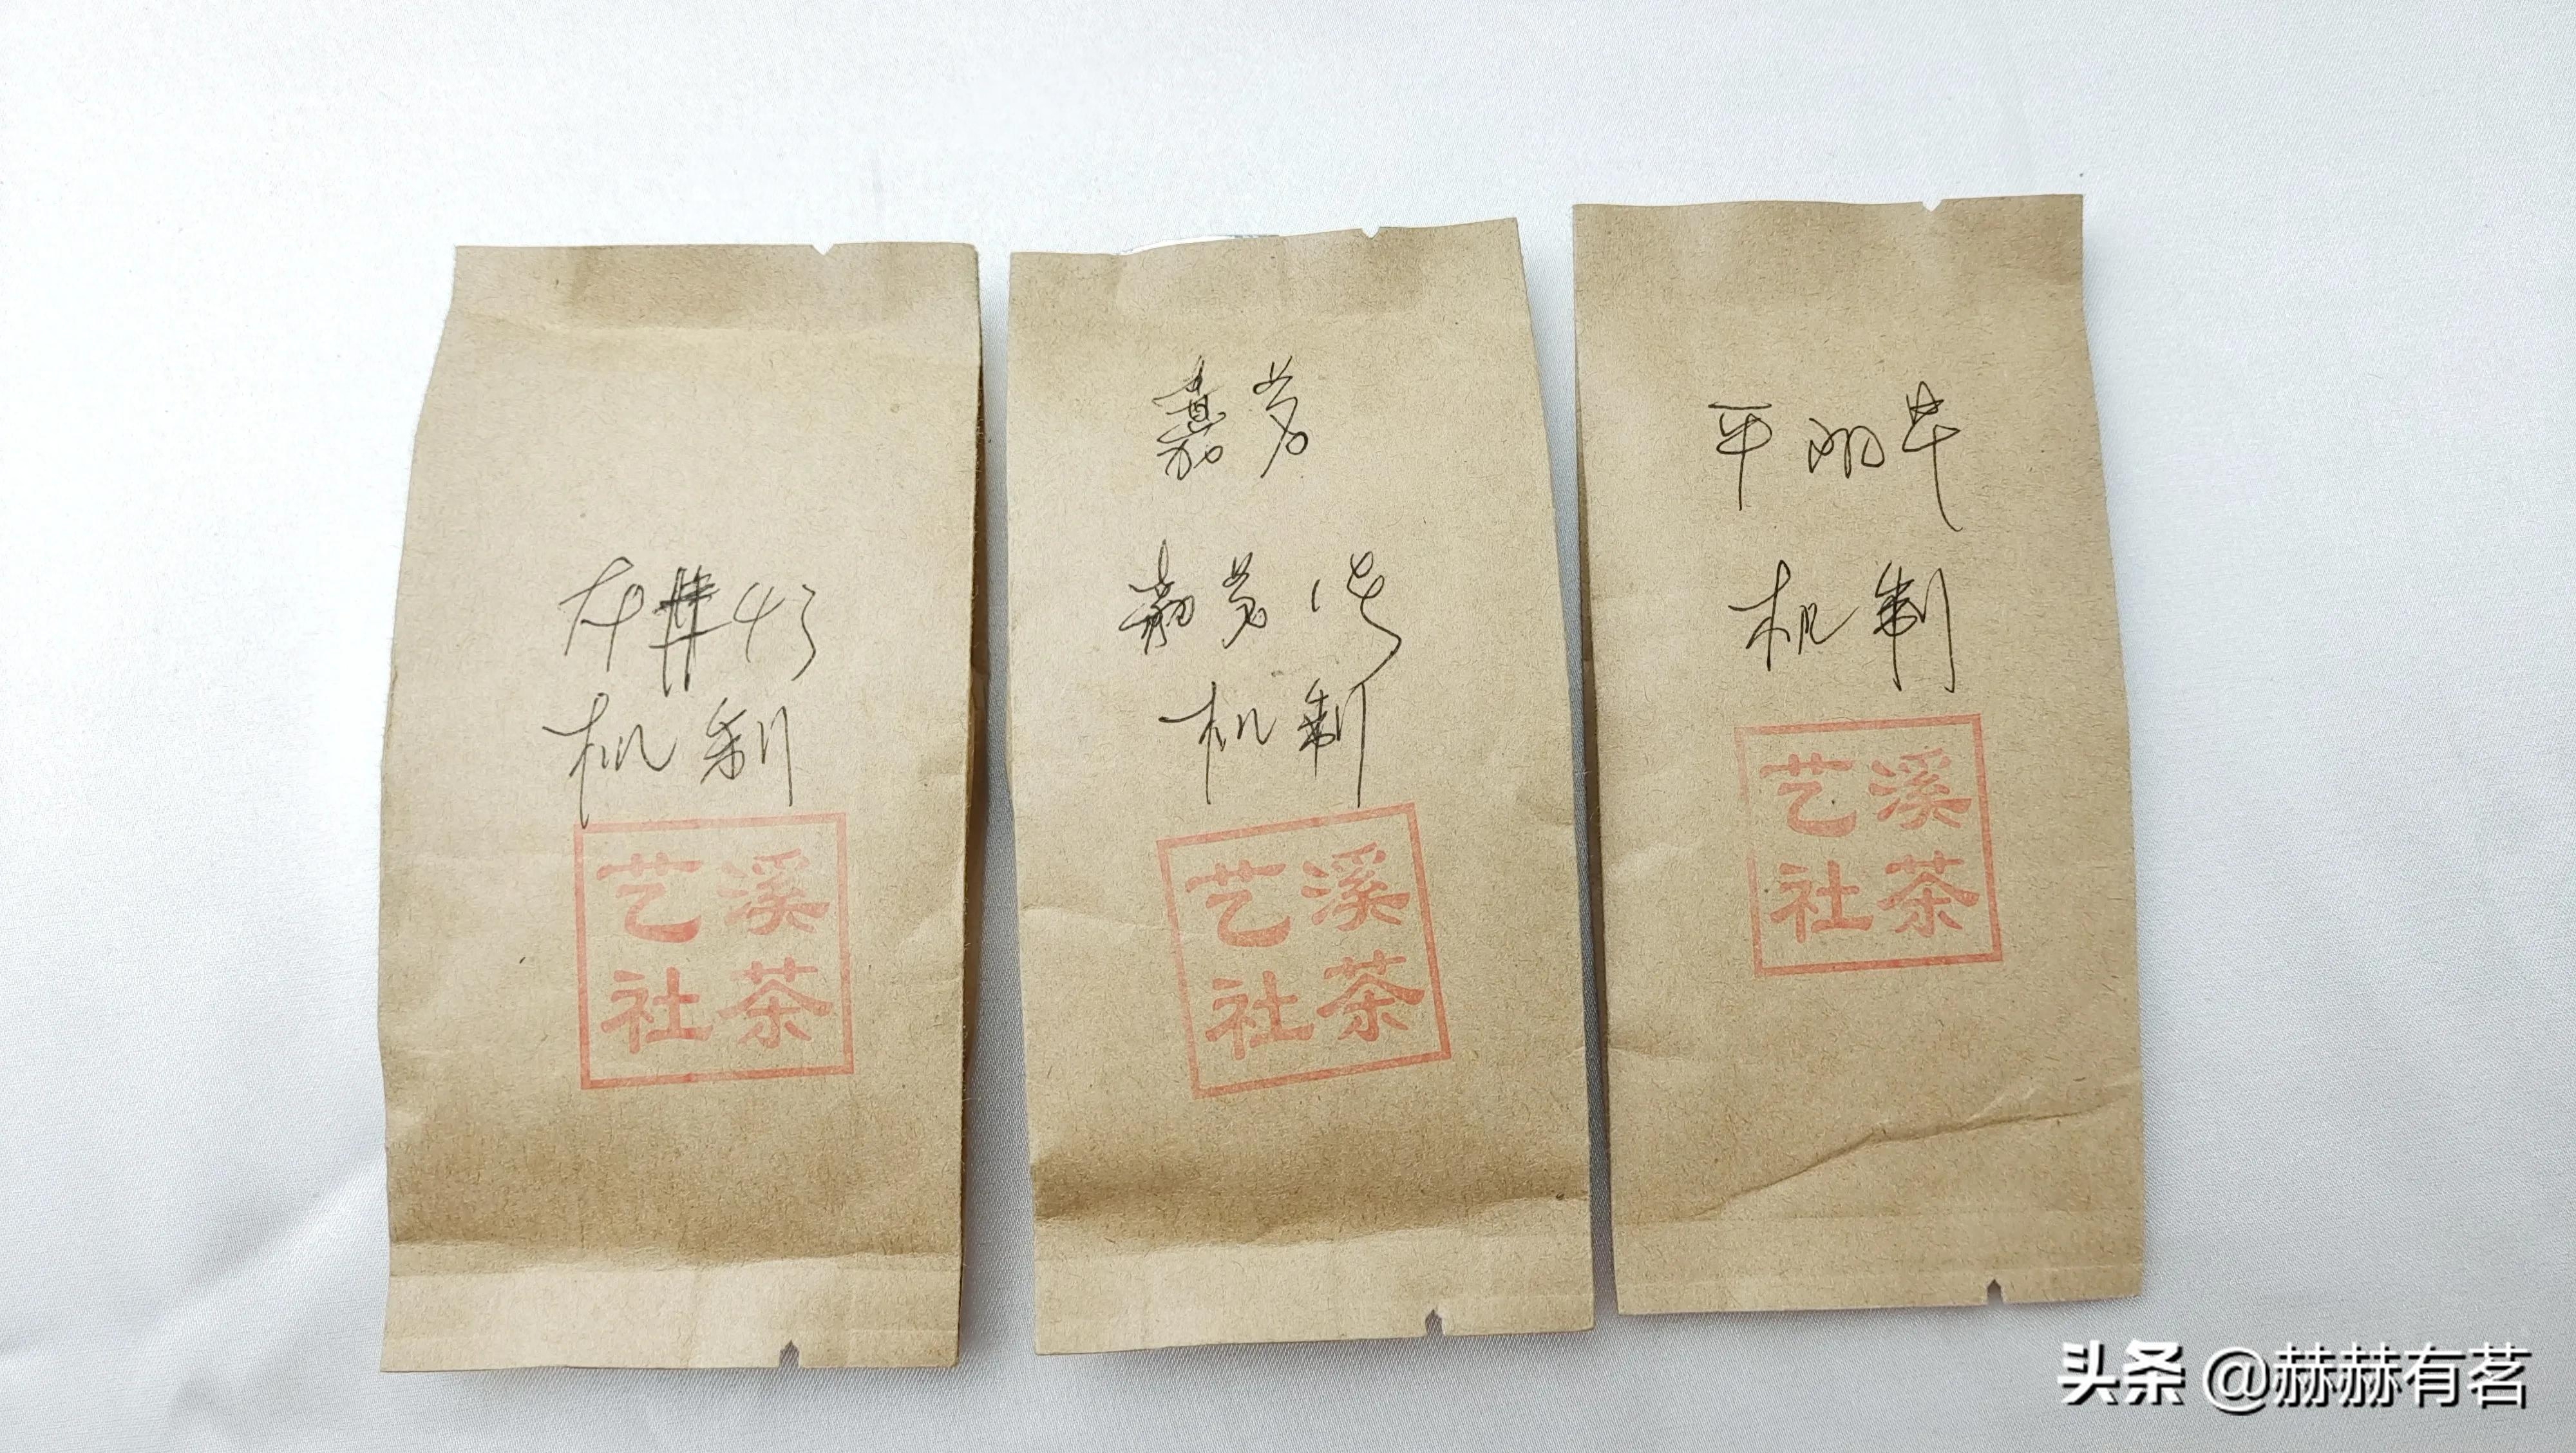 龙井43
机制
艺溪
社茶
嘉茗
嘉茗1号
机制
艺溪
社茶
平阳早
机制
艺溪
社茶
头条 @赫赫有茗